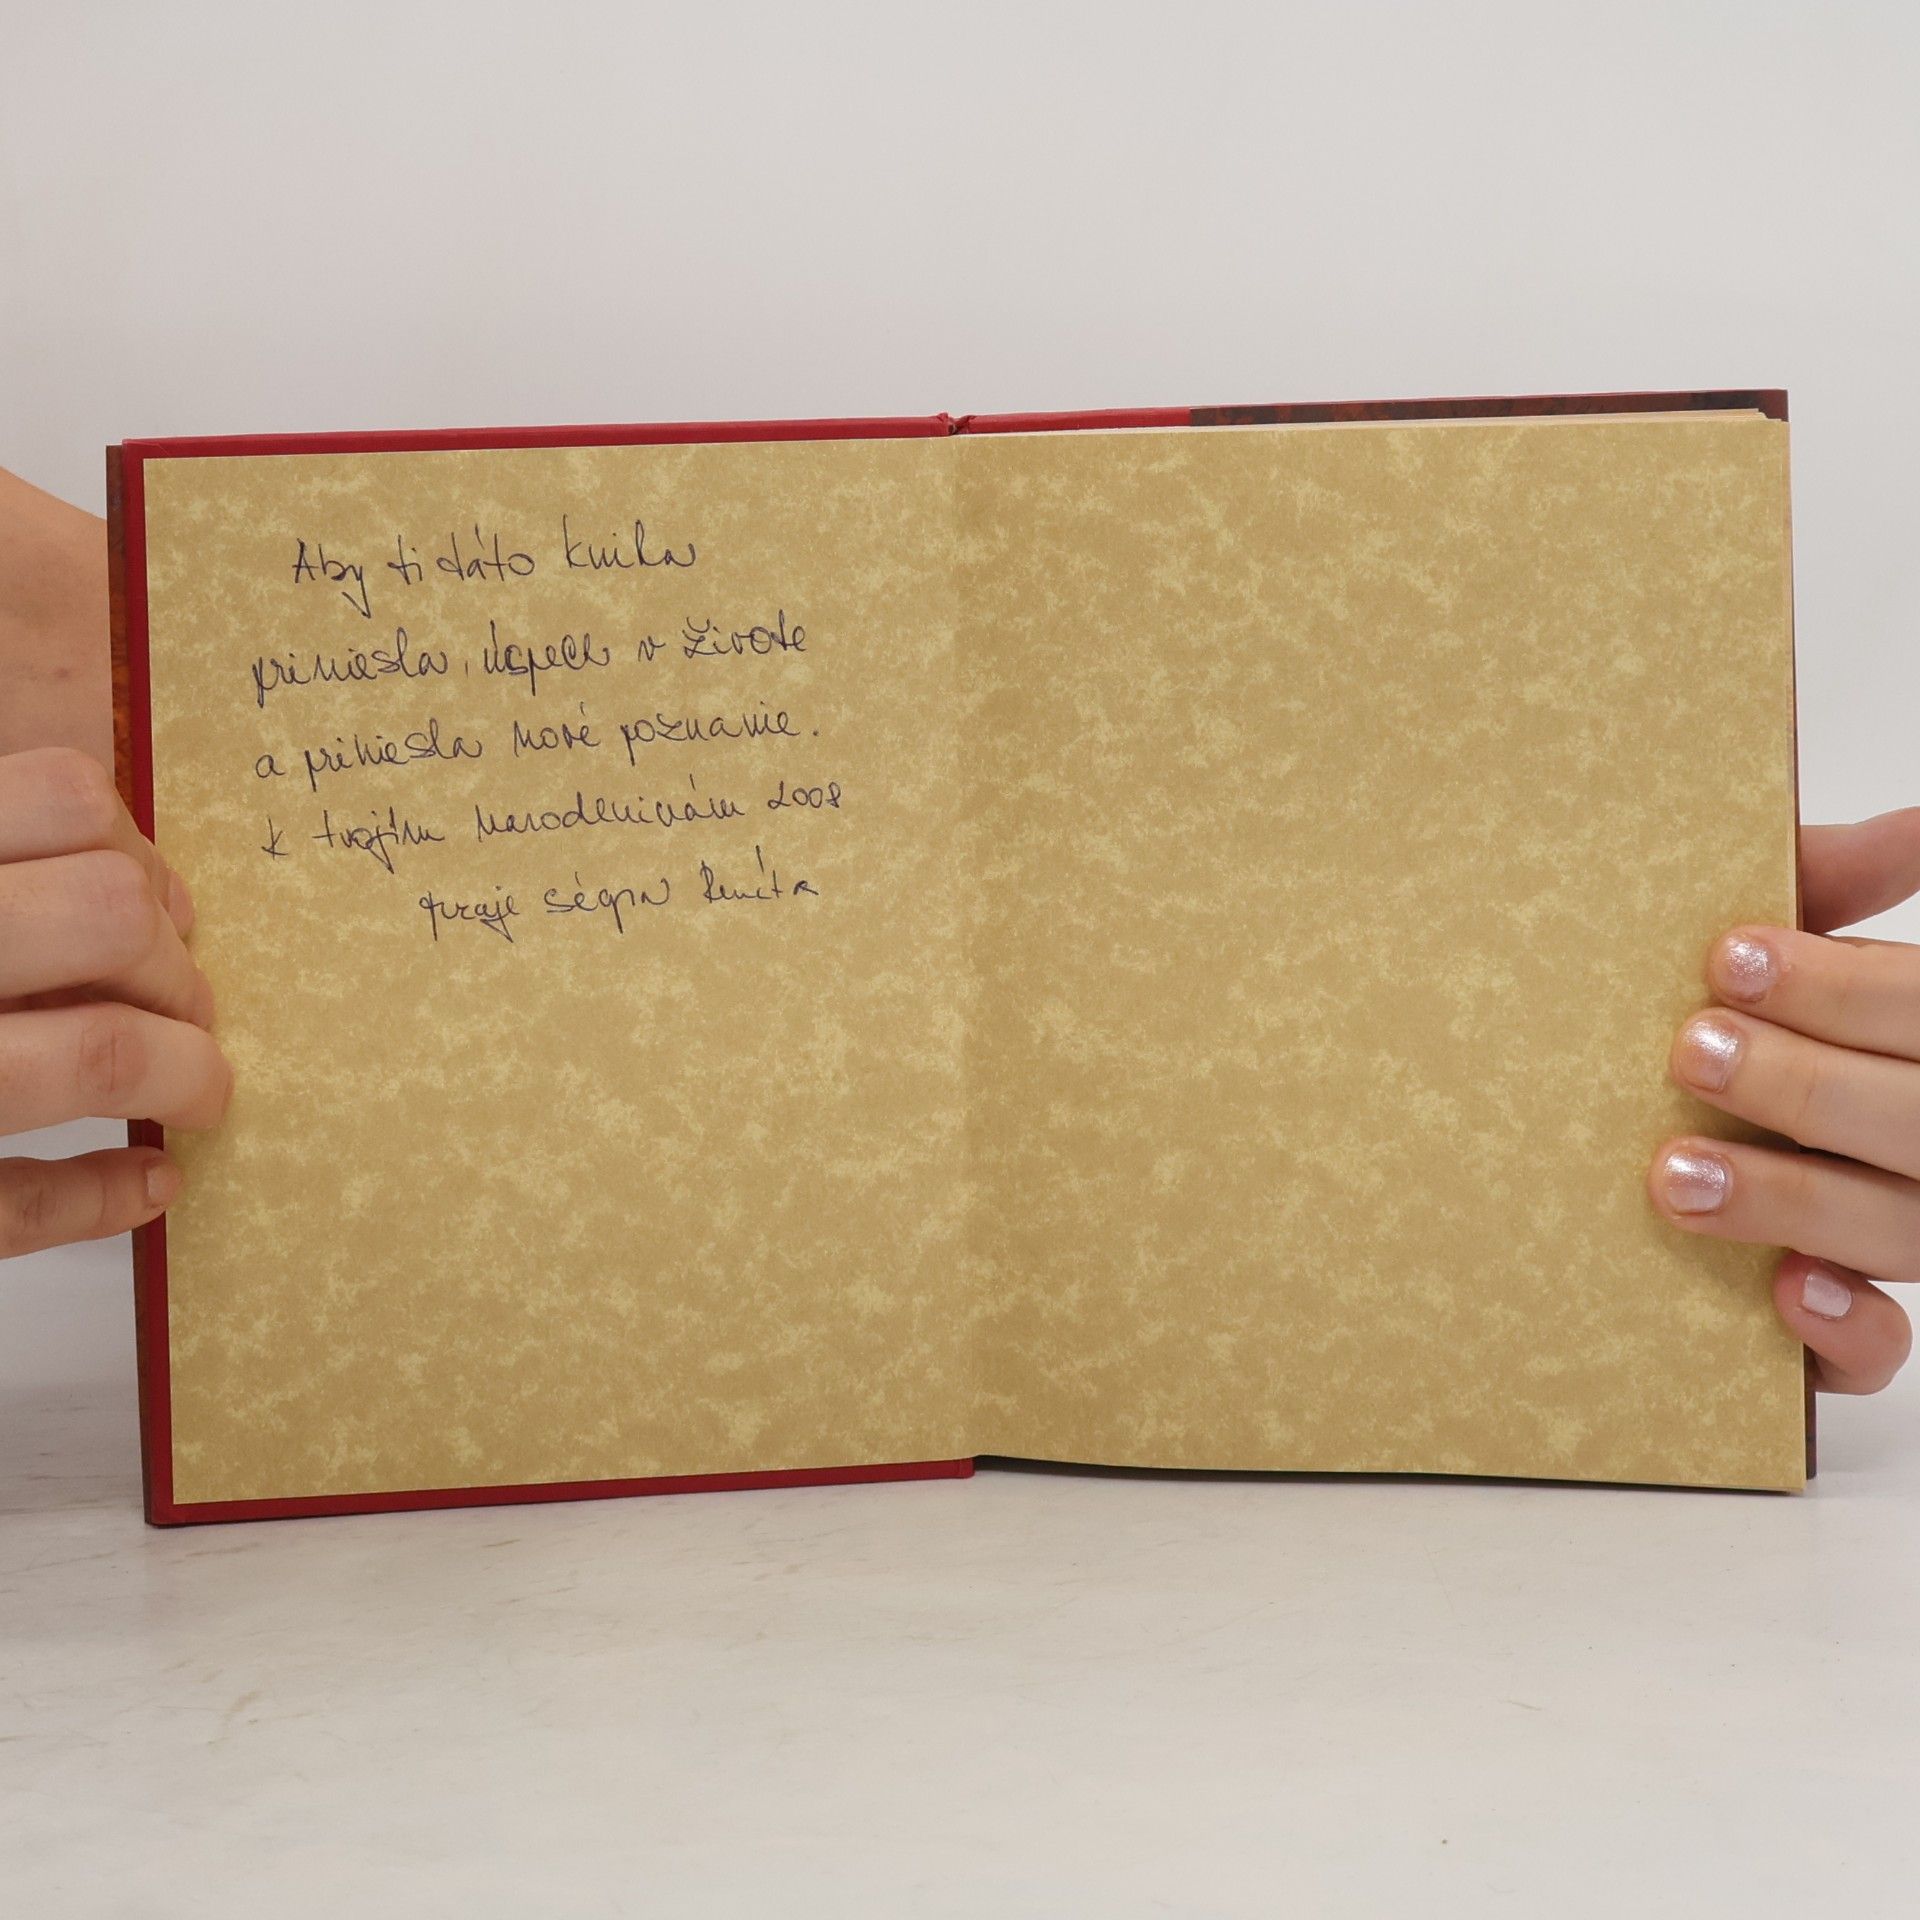 Aby ti táto kniha
priniesla, úspech v živote
a priniesla nové poznanie.
k tvojím narodeninám 2008
praje ségra Renáta